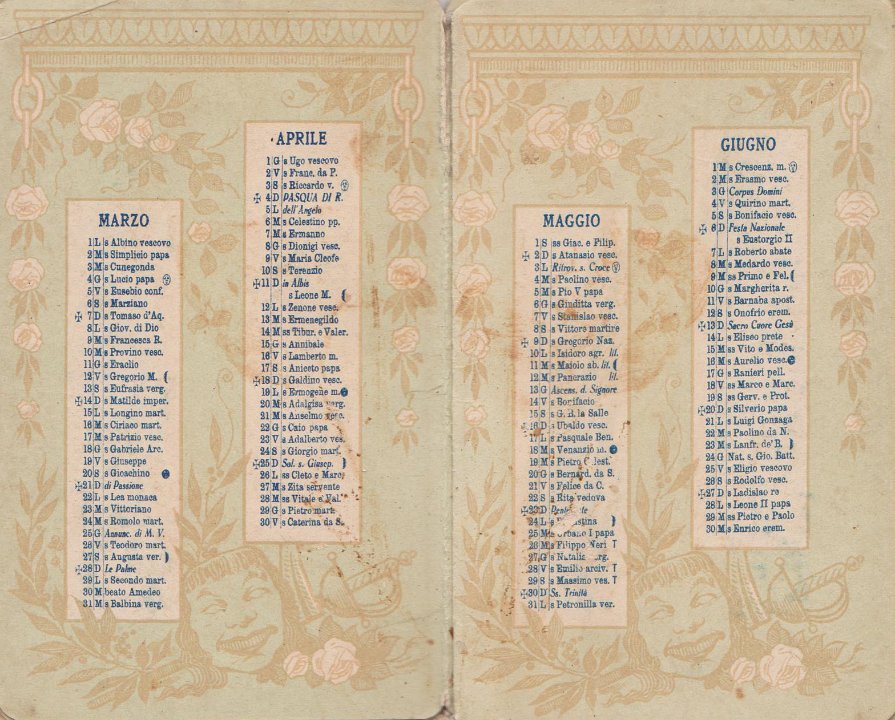 MARZO
1 L s Albino vescovo
2 M s Simplicio papa
3 M s Cunegonda
4 G s Lucio papa
5 V s Eusebio conf.
6 S s Marziano
✠ 7 D s Tomaso d'Aq.
8 L s Giov. di Dio
9 M s Francesca R.
10 M s Provino vesc.
11 G s Eraclio
12 V s Gregorio M.
13 S s Eufrasia verg.
✠14 D s Matilde imper.
15 L s Longino mart.
16 M s Ciriaco mart.
17 M s Patrizio vesc.
18 G s Gabriele Arc.
19 V s Giuseppe
20 S s Gioachino
✠21 D di Passione
22 L s Lea monaca
23 M s Vittoriano
24 M s Romolo mart.
25 G Annunc. di M. V.
26 V s Teodoro mart.
27 S s Augusta ver.
✠28 D Le Palme
29 L s Secondo mart.
30 M beato Amedeo
31 M s Balbina verg.
APRILE
1 G s Ugo vescovo
2 V s Franc. da P.
3 S s Riccardo v.
✠ 4 D PASQUA DI R.
5 L dell'Angelo
6 M s Celestino pp.
7 M s Ermanno
8 G s Dionigi vesc.
9 V s Maria Cleofe
10 S s Terenzio
✠11 D in Albis
s Leone M.
12 L s Zenone vesc.
13 M s Ermenegildo
14 M ss Tibur. e Valer.
15 G s Annibale
16 V s Lamberto m.
17 S s Aniceto papa
✠18 D s Galdino vesc.
19 L s Ermogene m.
20 M s Adalgisa verg.
21 M s Anselmo vesc.
22 G s Caio papa
23 V s Adalberto ves.
24 S s Giorgio mart.
✠25 D Sol. s. Giusep.
26 L ss Cleto e Marc.
27 M s Zita servente
28 M ss Vitale e Val.
29 G s Pietro mart.
30 V s Caterina da S.
MAGGIO
1 S ss Giac. e Filip.
✠ 2 D s Atanasio vesc.
3 L Ritrov. s. Croce
4 M s Paolino vesc.
5 M s Pio V papa
6 G s Giuditta verg.
7 V s Stanislao vesc.
8 S s Vittore martire
✠ 9 D s Gregorio Naz.
10 L s Isidoro agr. lit.
11 M s Maiolo ab. lit.
12 M s Pancrazio lit.
13 G Ascens. d. Signore
14 V s Bonifacio
15 S s G. B. la Salle
✠16 D s Ubaldo vesc.
17 L s Pasquale Ben.
18 M s Venanzio m.
19 M s Pietro Celest.
20 G s Bernard. da S.
21 V s Felice da C.
22 S s Rita vedova
✠23 D Pentecoste
24 L s
25 M s Urbano I papa
26 M s Filippo Neri T
27 G s Natalia verg.
28 V s Emilio arciv. T
29 S s Massimo ves. T
✠30 D Ss. Trinità
31 L s Petronilla ver.
GIUGNO
1 M s Crescenz. m.
2 M s Erasmo vesc.
3 G Corpus Domini
4 V s Quirino mart.
5 S s Bonifacio vesc.
✠ 6 D Festa Nazionale
s Eustorgio II
7 L s Roberto abate
8 M s Medardo vesc.
9 M ss Primo e Fel.
10 G s Margherita r.
11 V s Barnaba apost.
12 S s Onofrio erem.
✠13 D Sacro Cuore Gesù
14 L s Eliseo prete
15 M ss Vito e Modes.
16 M s Aurelio vesc.
17 G s Ranieri pell.
18 V ss Marco e Marc.
19 S ss Gerv. e Prot.
✠20 D s Silverio papa
21 L s Luigi Gonzaga
22 M s Paolino da N.
23 M s Lanfr. de' B.
24 G Nat. s. Gio. Batt.
25 V s Eligio vescovo
26 S s Rodolfo vesc.
✠27 D s Ladislao re
28 L s Leone II papa
29 M ss Pietro e Paolo
30 M s Enrico erem.